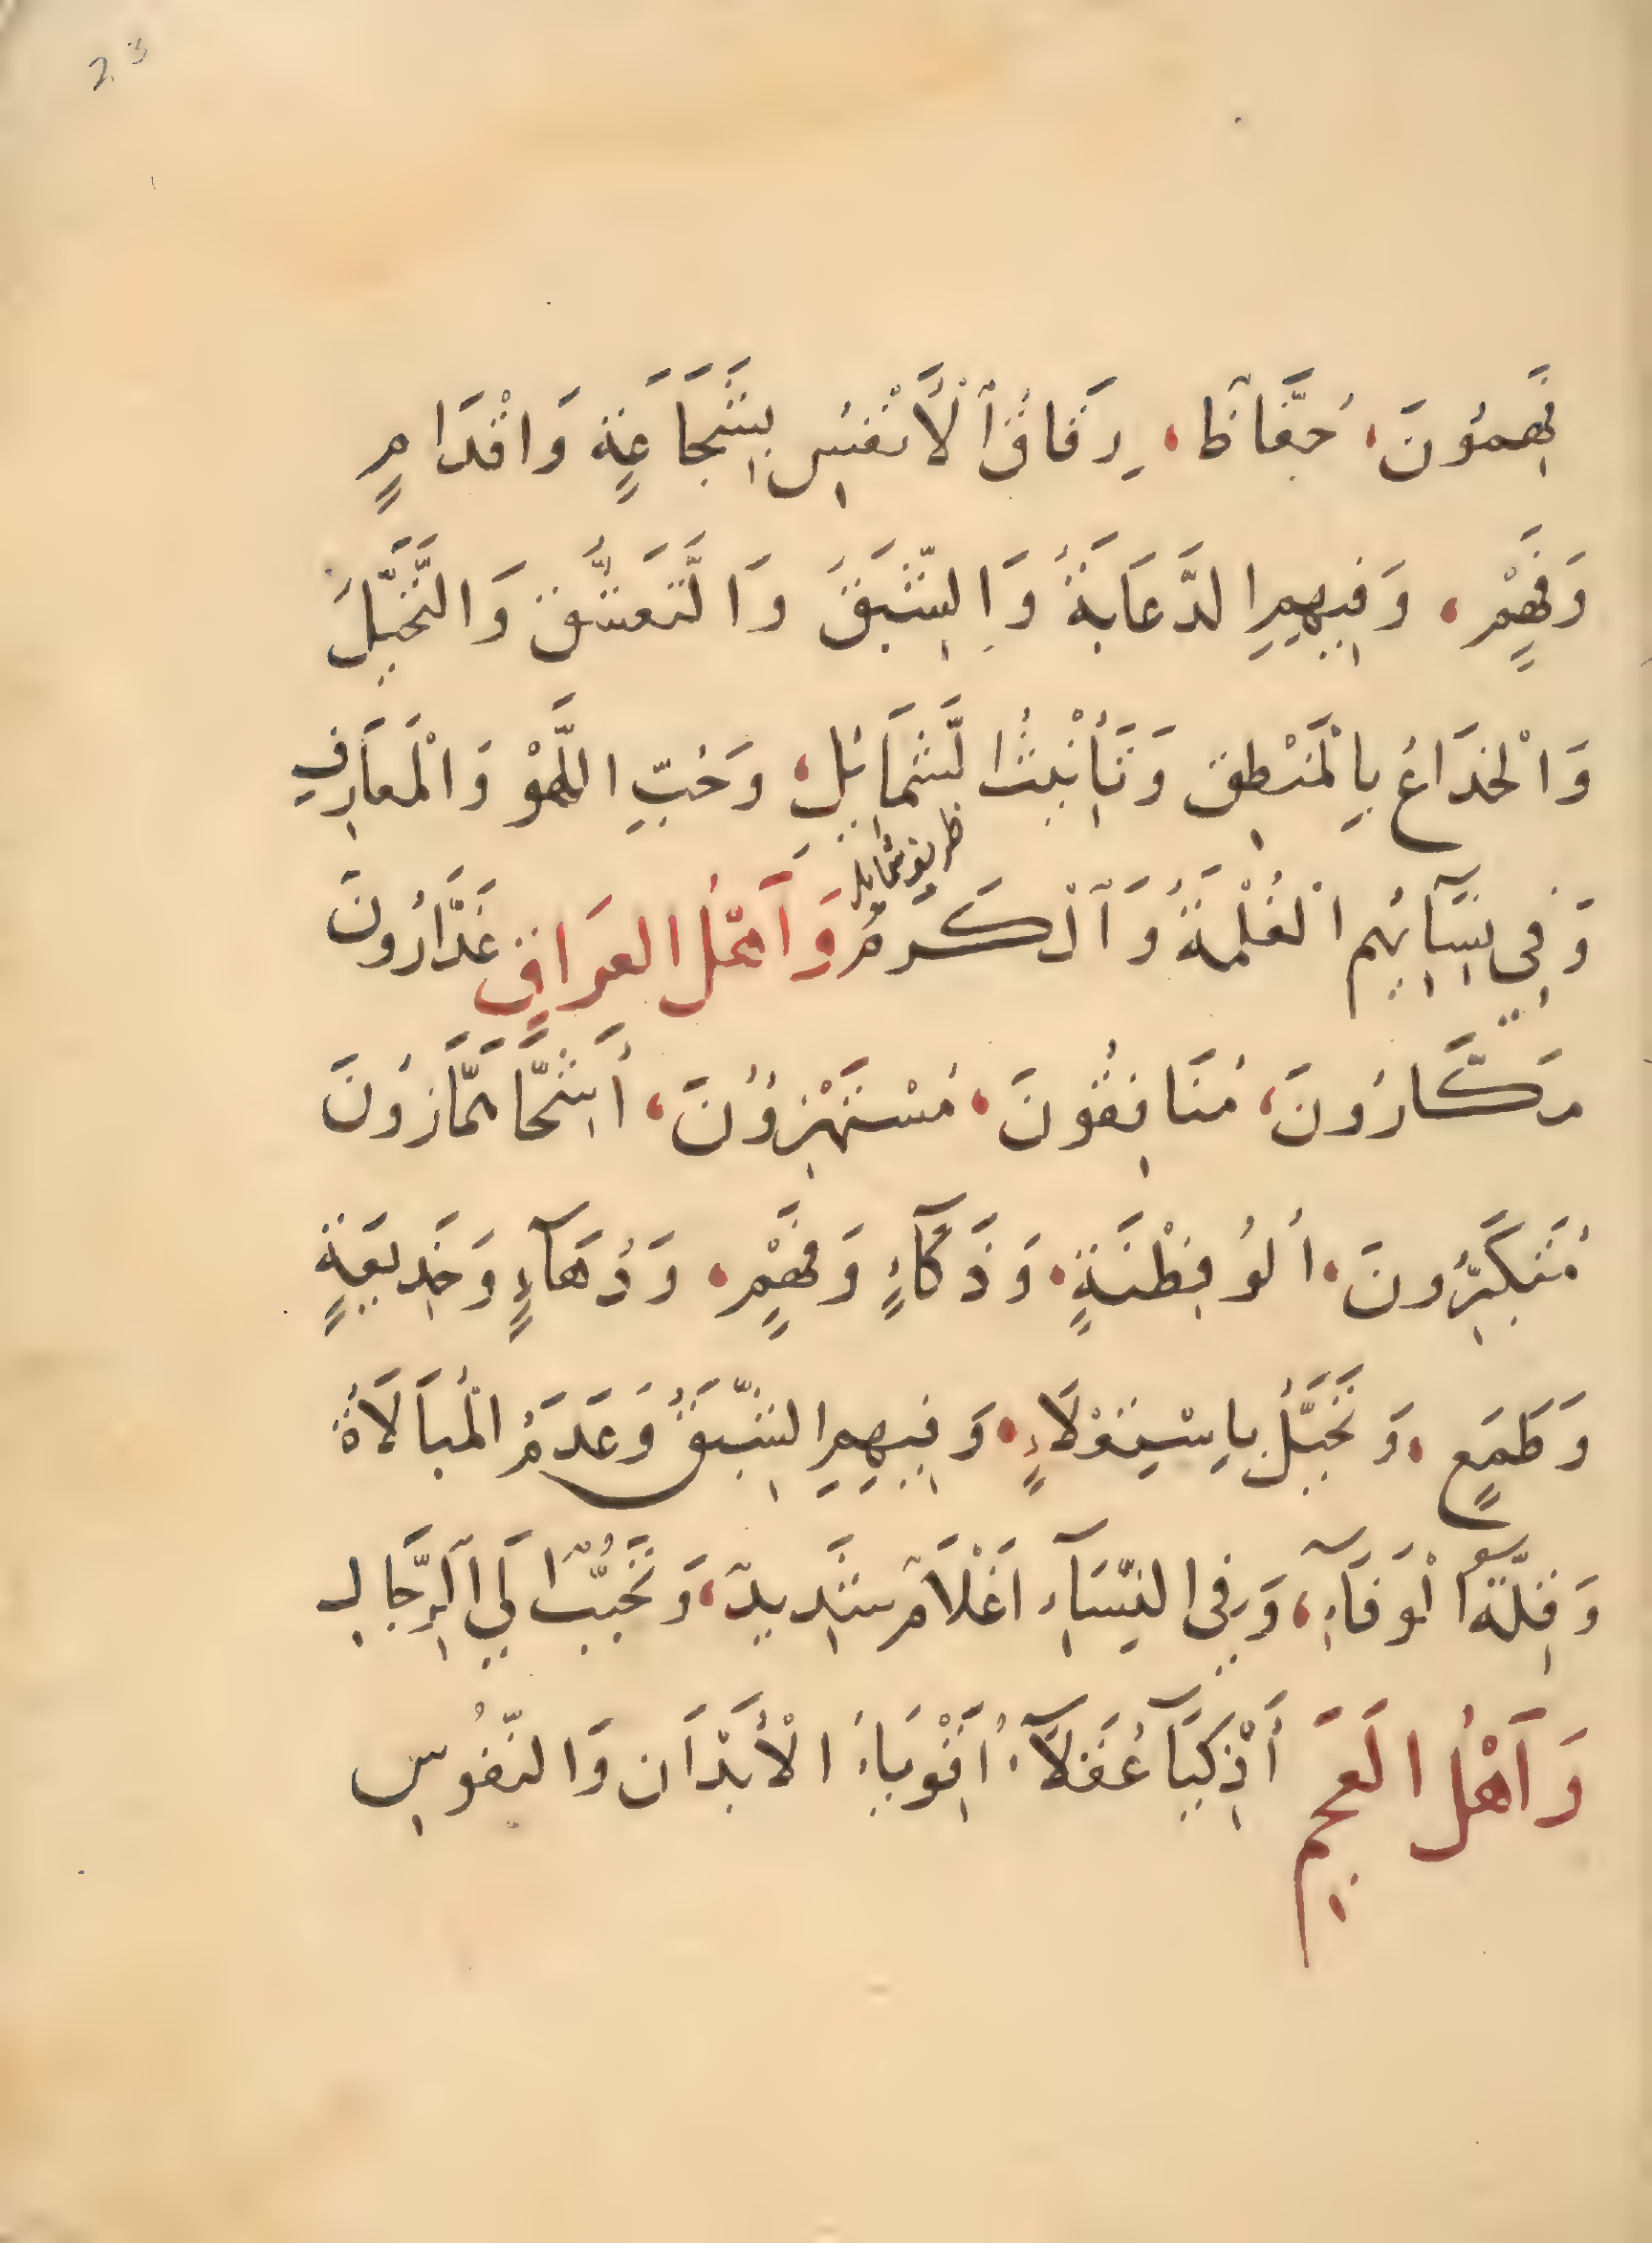 23
فَهِمُونَ، حُفَّاظًا، رِقَاقُ ٱلْأَنْفُسِ بِشَجَاعَةٍ وَاقْدَامٍ
وَفَهْمٍ، وَفِيهِمِ الدَّعَابَةُ وَالشَّبَقُ وَالتَّعَشُّق وَالتَّخَيُّلُ
وَالْخِدَاعُ بِالْمَنْطِقِ وَتَأْنِيثُ الشَّمَائِلِ، وَحُبِّ اللَّهْوِ وَالْمَعَازِفِ
وَفِي نِسَآئِهِم الْغُلْمَةُ وَٱلْكَرَمُ وَاَهْلُ العِرَاقِ غَدَّارُونَ
مَكَّارُونَ، مُنَافِقُونَ، مُسْتَهْزِؤُنَ، أَشِحَّا هَمَّازُونَ
مُتَكَبِّرُونَ، أُلُو فِطْنَةٍ، وَذَكَآءٍ وَفَهْمٍ، وَدُهَآءٍ وَخَدِيعَةٍ
وَطَمَعٍ، وَتَخَيُّلٍ بِاسْتِوْلَاءٍ، وَفِيهِمِ الشَّبَقُ وَعَدَمُ الْمُبَالَاةُ
وَقِلَّةُ الْوَفَآءِ، وَفِي النِّسَآءِ اغْلَامٌ شَدِيدٌ، وَتَحَبُّبٌ اِلَي ٱلرِّجَالِ
وَاَهْلُ العَجَمِ أَذْكِيَآ عُقَلَآءُ أَقْوِيَاءُ الْأَبْدَانِ وَالنُّفُوسِ